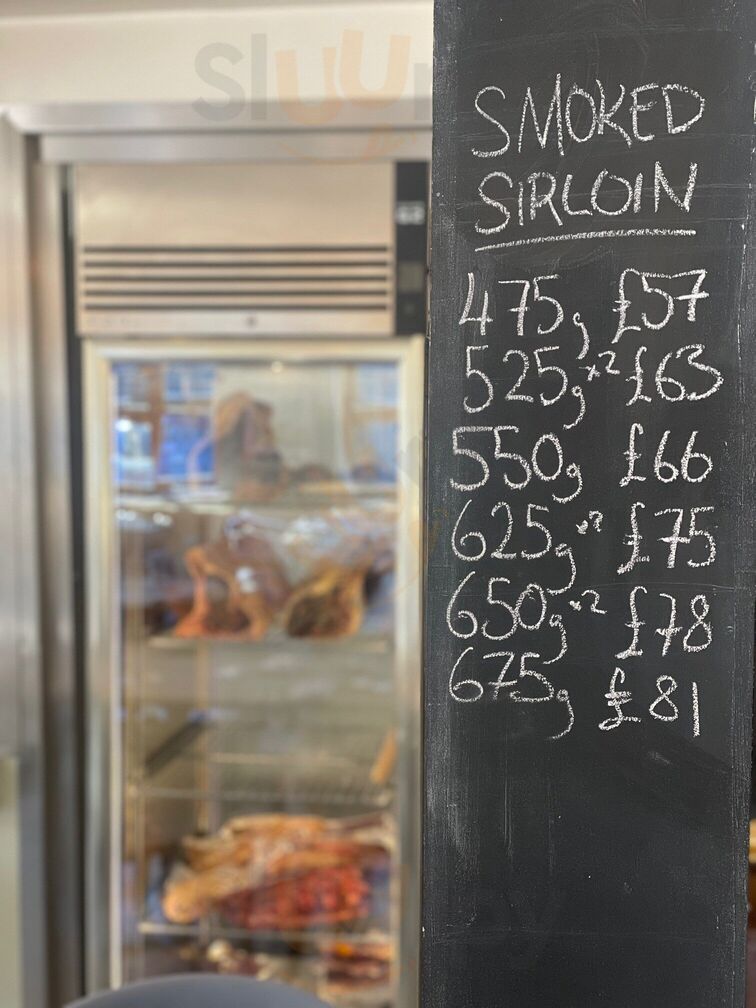 SMOKED
SIRLOIN
475g £57
525g x2 £63
550g £66
625g £75
650g x2 £78
675g £81